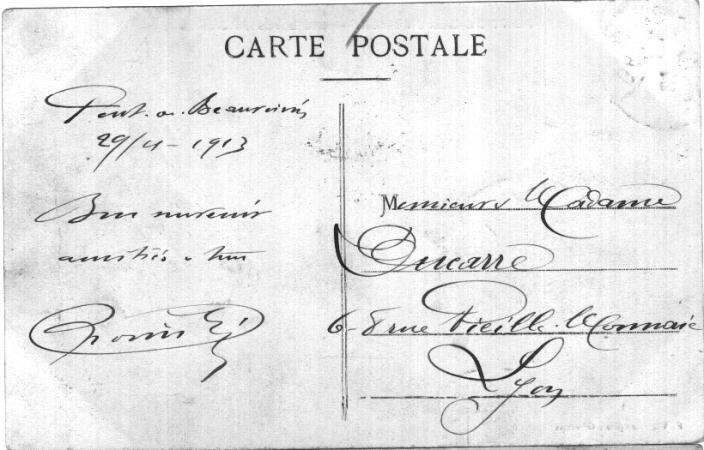 CARTE POSTALE
Pont-de-Beauvoisin
29/4-1913
Bon souvenir
amitiés à tous
Monsieur & Madame
Ducarre
6-8 rue Vieille-Monnaie
Lyon